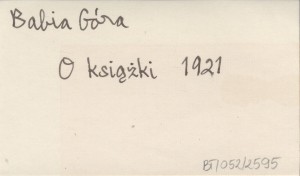 Babia Góra
O książki 1921
BT/052/2595